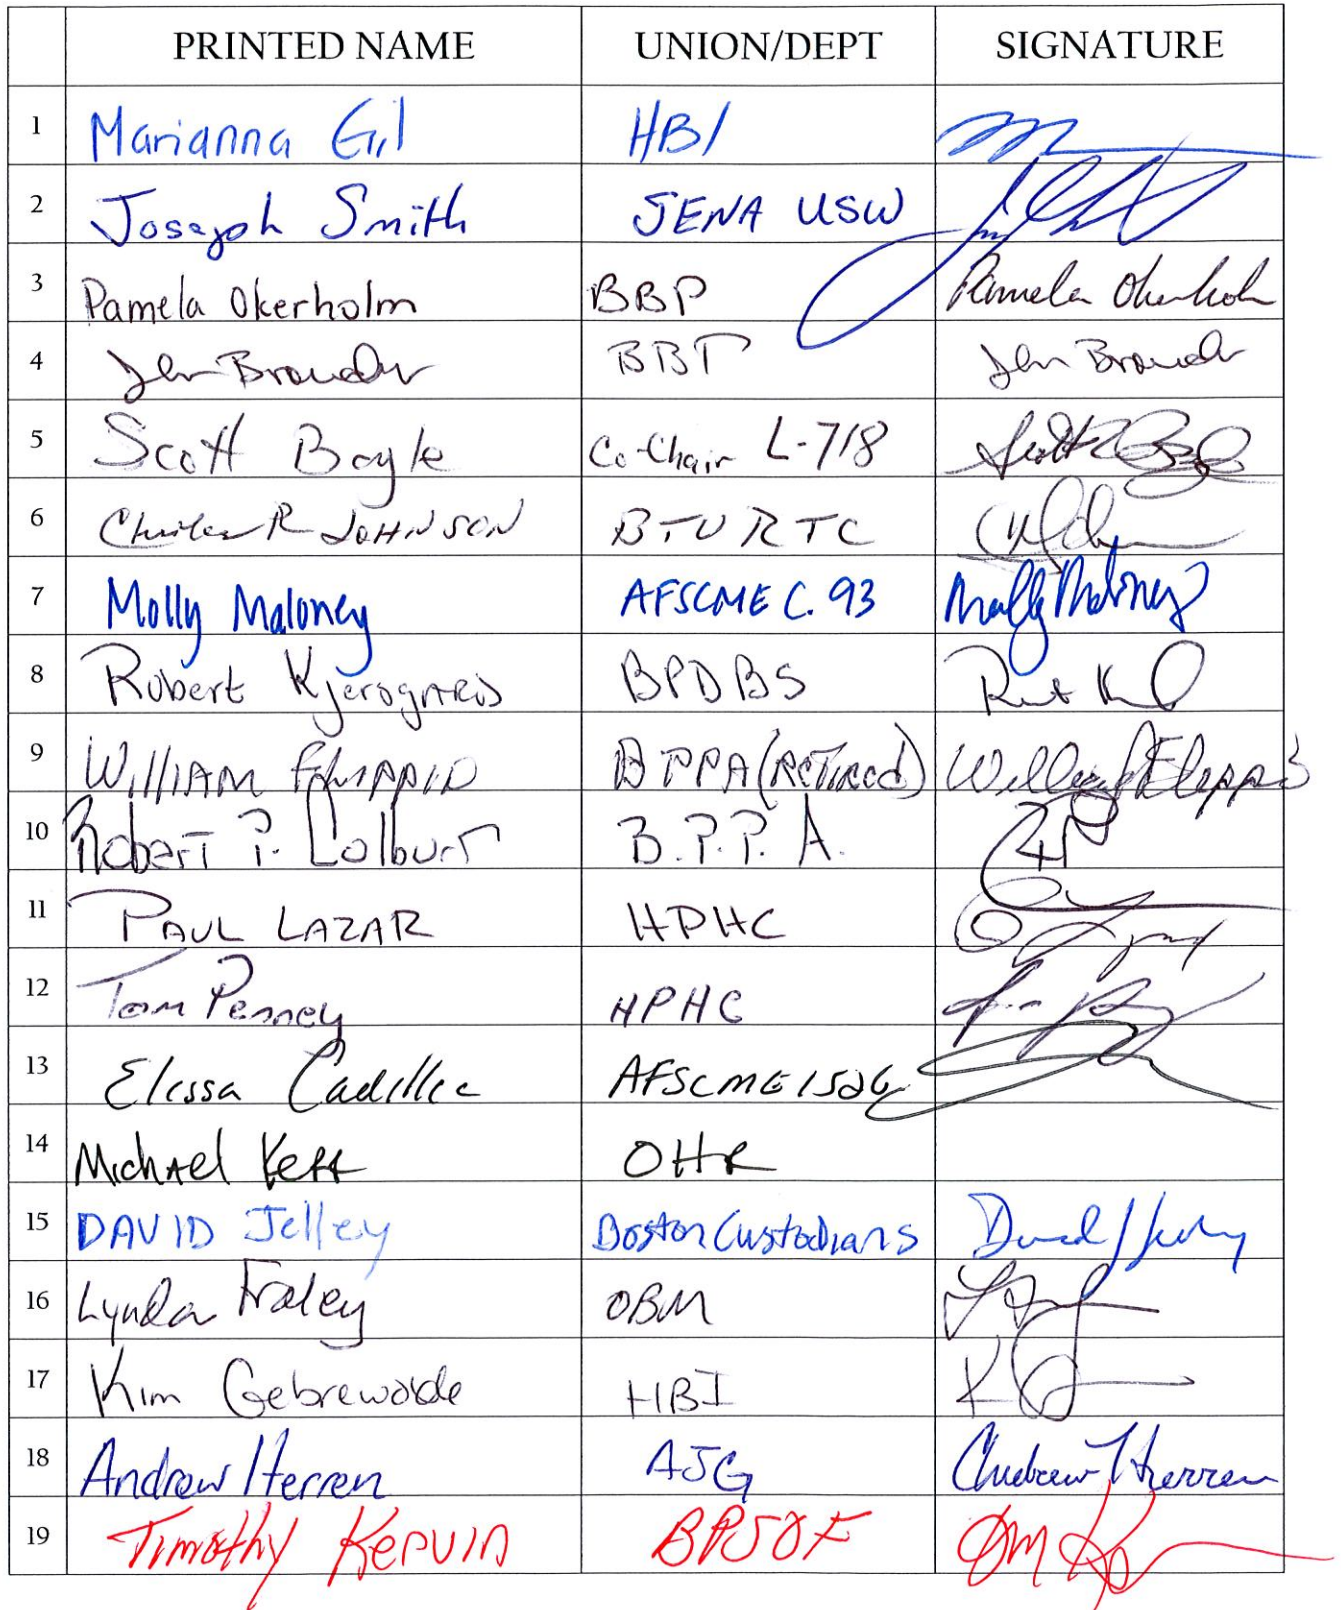 PRINTED NAME UNION/DEPT SIGNATURE
1 Marianna Gil HBI
2 Joseph Smith SENA USW
3 Pamela Okerholm BBP Pamela Okerholm
4 Jen Browder BBT Jen Browder
5 Scott Boyle Co-Chair L-718 Scott Boyle
6 Charles R JOHNSON BTU RTC
7 Molly Maloney AFSCME C. 93 Molly Maloney
8 Robert BPDBS
9 William BPPA (RETIRED) William
10 Robert P. Colburt B.P.P.A.
11 PAUL LAZAR HPHC
12 Tom Penney HPHC
13 Elissa Cadillic AFSCME 1526
14 Michael OHR
15 DAVID Jelley Boston Custodians David Jelley
16 Lynda Fraley OBM
17 Kim Gebrewolde HBI K
18 Andrew Herren AJG Andrew Herren
19 Timothy Kervin BPSOF